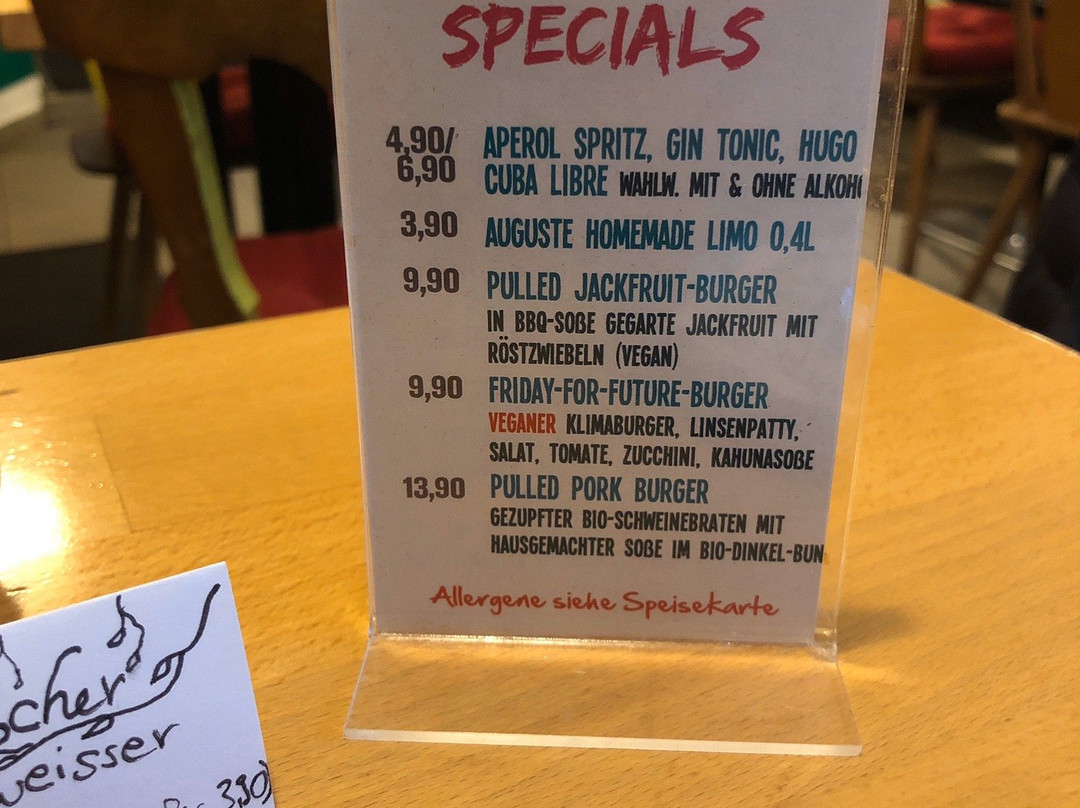 SPECIALS
4,90/
6,90
APEROL SPRITZ, GIN TONIC, HUGO
CUBA LIBRE WAHLW. MIT & OHNE ALKOHO
3,90 AUGUSTE HOMEMADE LIMO 0,4L
9,90 PULLED JACKFRUIT-BURGER
IN BBQ-SOßE GEGARTE JACKFRUIT MIT
RÖSTZWIEBELN (VEGAN)
9,90 FRIDAY-FOR-FUTURE-BURGER
VEGANER KLIMABURGER, LINSENPATTY,
SALAT, TOMATE, ZUCCHINI, KAHUNASOßE
13,90 PULLED PORK BURGER
GEZUPFTER BIO-SCHWEINEBRATEN MIT
HAUSGEMACHTER SOßE IM BIO-DINKEL-BUN
Allergene siehe Speisekarte
cher
weisser
3,90